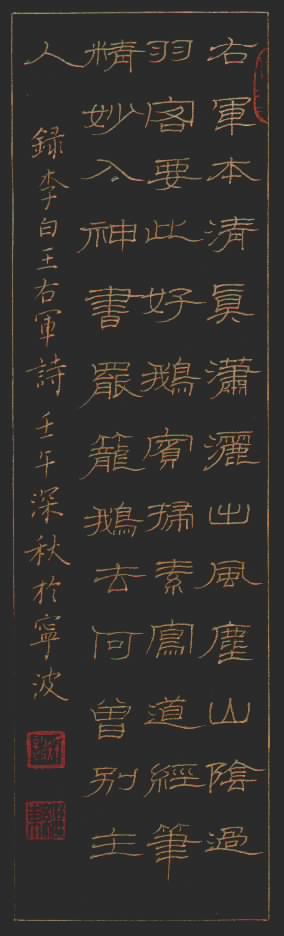 右軍本清眞瀟灑出風塵山陰過
羽客要此好鵝賓掃素寫道經筆
精妙入神書罷籠鵝去何曾別主
人
録李白王右軍詩 壬午深秋於寧波